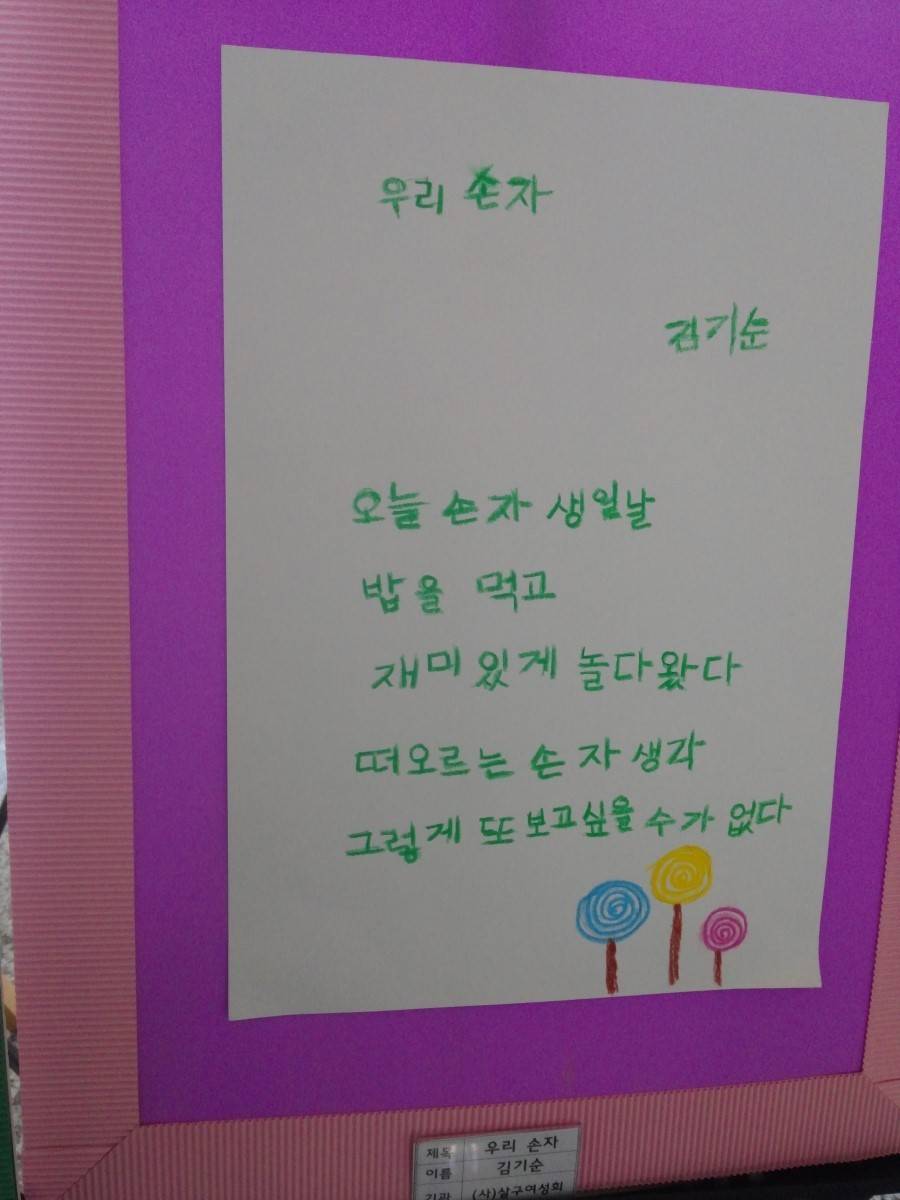 우리 손자
김기순
오늘 손자 생일날
밥을 먹고
재미있게 놀다왔다
떠오르는 손자생각
그렇게 또 보고싶을 수가 없다
제목 우리 손자
이름 김기순
기관 (사)살구여성회